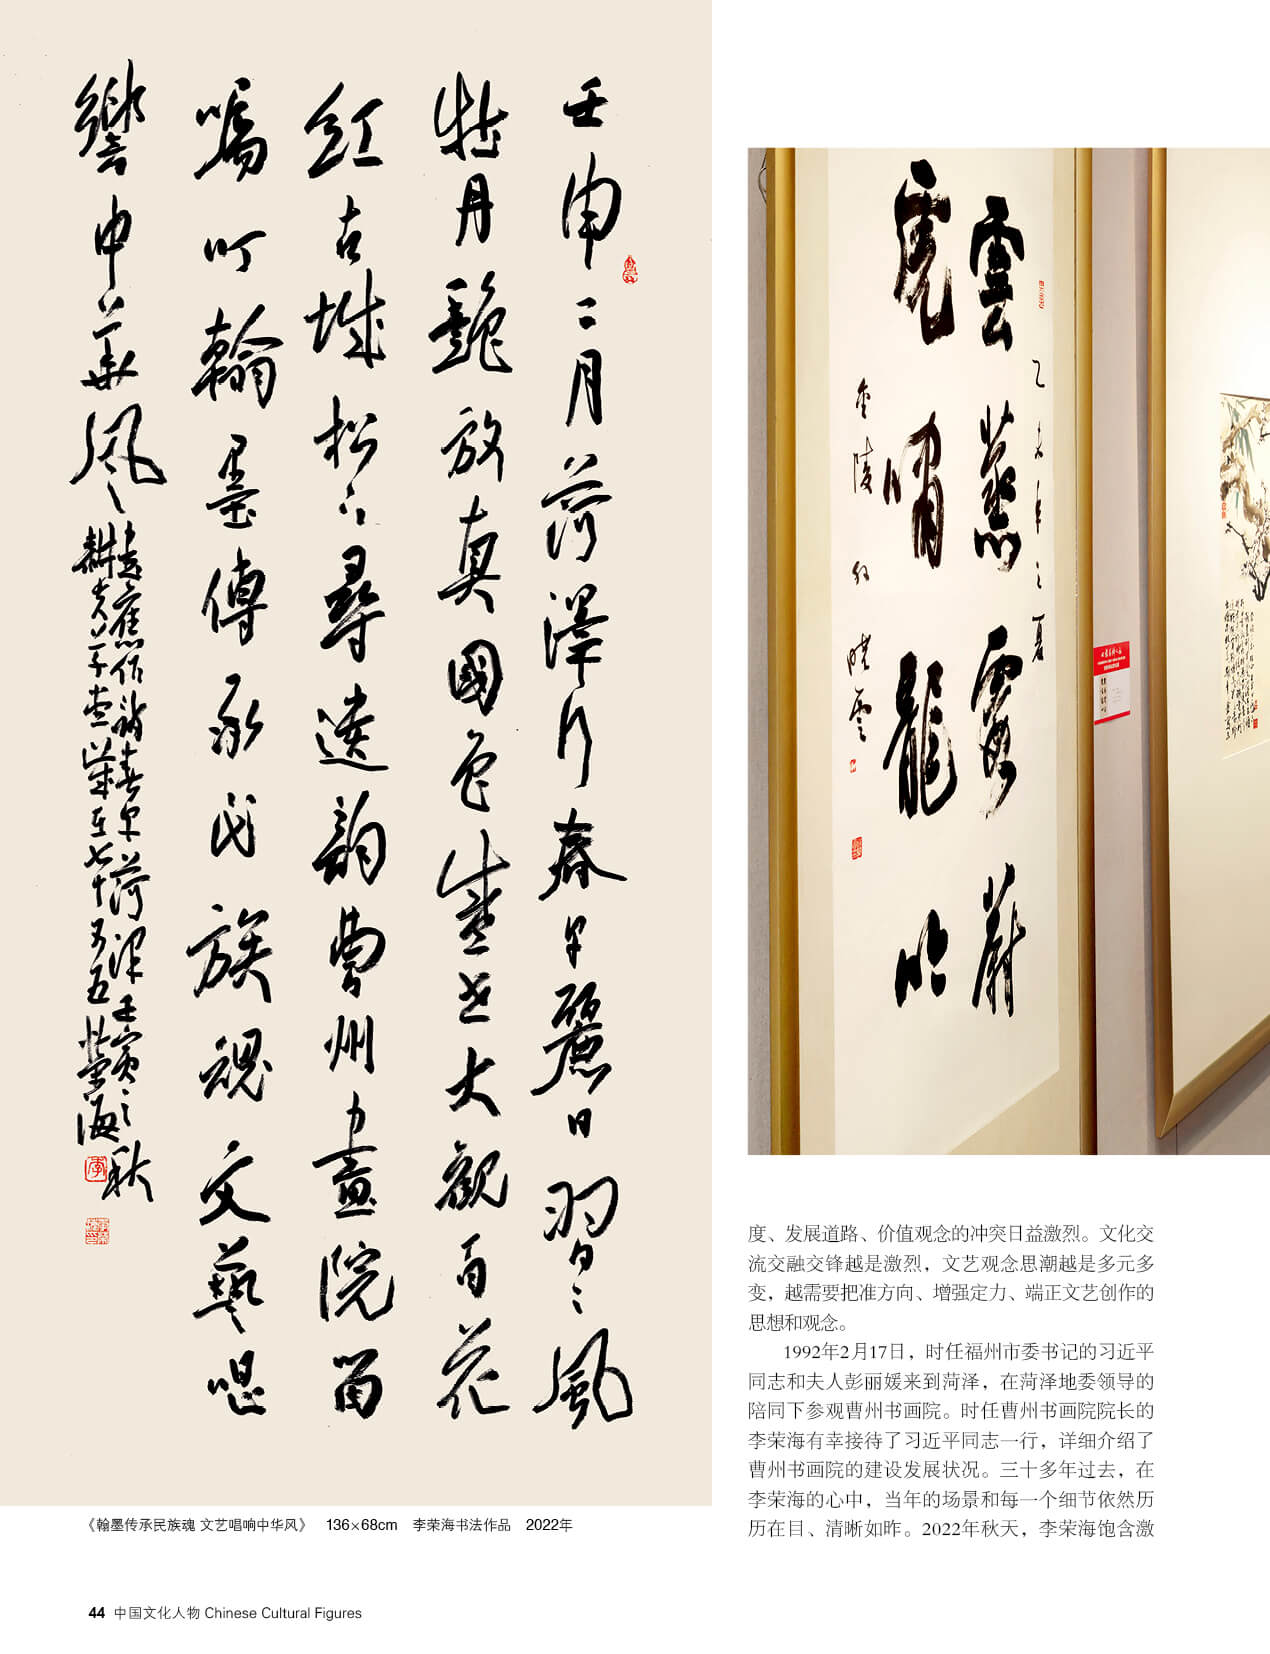 壬申二月菏澤行春早麗日習習風
牡丹艷放真國色盛世大觀百花
紅古城松下尋遺韵曹州畫院留
囑叮翰墨傳承民族魂文藝唱
響中華风
壬寅之秋
七十又五
榮海
《翰墨传承民族魂 文艺唱响中华风》 136×68cm 李荣海书法作品 2022年
乙未年之夏
雲蒸霞蔚
虎嘯龍吟
金陵
度、发展道路、价值观念的冲突日益激烈。文化交
流交融交锋越是激烈，文艺观念思潮越是多元多
变，越需要把准方向、增强定力、端正文艺创作的
思想和观念。
1992年2月17日，时任福州市委书记的习近平
同志和夫人彭丽媛来到菏泽，在菏泽地委领导的
陪同下参观曹州书画院。时任曹州书画院院长的
李荣海有幸接待了习近平同志一行，详细介绍了
曹州书画院的建设发展状况。三十多年过去，在
李荣海的心中，当年的场景和每一个细节依然历
历在目、清晰如昨。2022年秋天，李荣海饱含激
44 中国文化人物 Chinese Cultural Figures